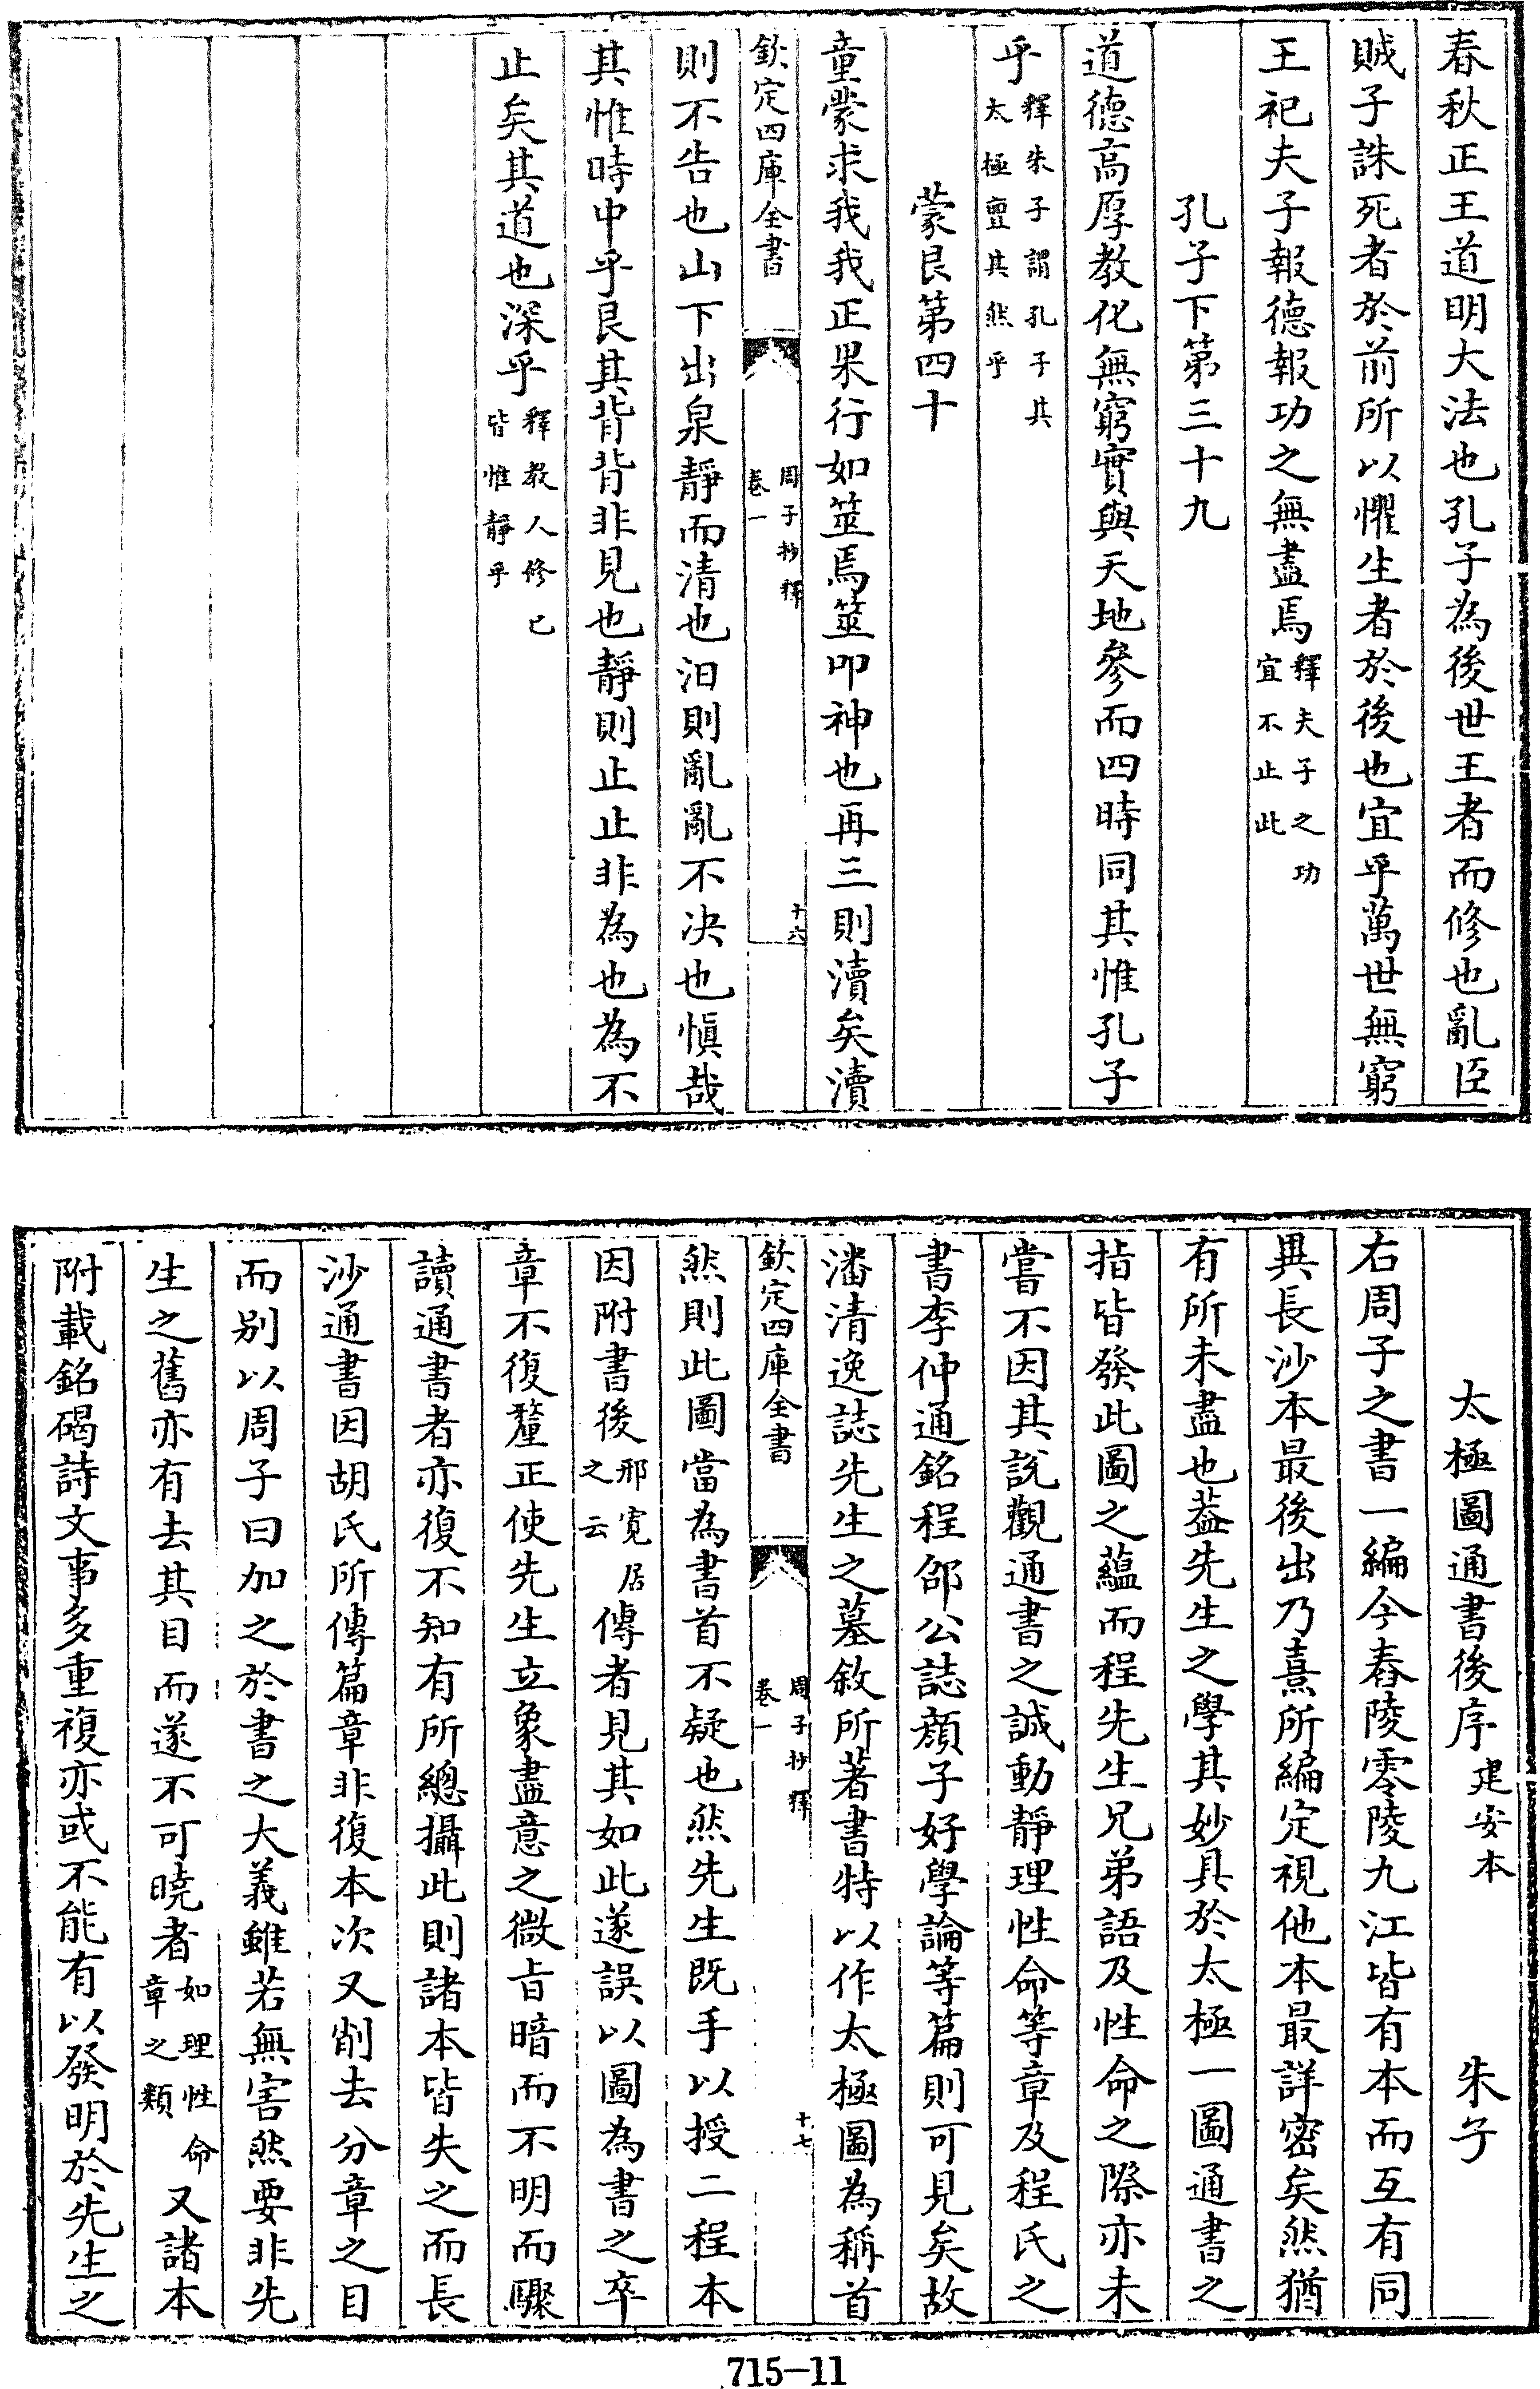 春秋正王道明大法也孔子為後世王者而修也亂臣
賊子誅死者於前所以懼生者於後也宜乎萬世無窮
王祀夫子報德報功之無盡焉釋夫子之功宜不止此
孔子下第三十九
道德高厚教化無窮實與天地參而四時同其惟孔子
乎釋朱子謂孔子其太極亶其然乎
蒙艮第四十
童蒙求我我正果行如筮焉筮叩神也再三則瀆矣瀆
欽定四庫全書
周子抄釋
卷一
十六
則不告也山下出泉靜而清也汩則亂亂不决也慎哉
其惟時中乎艮其背背非見也靜則止止非為也為不
止矣其道也深乎釋教人修已皆惟靜乎
太極圖通書後序建安本 朱子
右周子之書一編今舂陵零陵九江皆有本而互有同
異長沙本最後出乃熹所編定視他本最詳密矣然猶
有所未盡也葢先生之學其妙具於太極一圖通書之
指皆發此圖之蘊而程先生兄弟語及性命之際亦未
嘗不因其說觀通書之誠動靜理性命等章及程氏之
書李仲通銘程邵公誌顔子好學論等篇則可見矣故
潘清逸誌先生之墓敘所著書特以作太極圖為稱首
欽定四庫全書
周子抄釋
卷一
十七
然則此圖當為書首不疑也然先生既手以授二程本
因附書後邢寛居之云傳者見其如此遂誤以圖為書之卒
章不復釐正使先生立象盡意之微㫖暗而不明而驟
讀通書者亦復不知有所總攝此則諸本皆失之而長
沙通書因胡氏所傳篇章非復本次又削去分章之目
而别以周子曰加之於書之大義雖若無害然要非先
生之舊亦有去其目而遂不可曉者如理性命章之類又諸本
附載銘碣詩文事多重複亦或不能有以發明於先生之
715-11